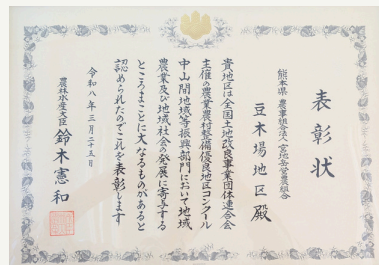 表彰状
熊本県 農事組合法人宮地岳営農組合
豆木場地区殿
貴地区は全国土地改良事業団体連合会
主催の農業農村整備優良地区コンクール
中山間地域等振興部門において地域
農業及び地域社会の発展に寄与する
ところまことに大なるものがあると
認められたのでこれを表彰します
令和八年三月二十五日
農林水産大臣 鈴木憲和